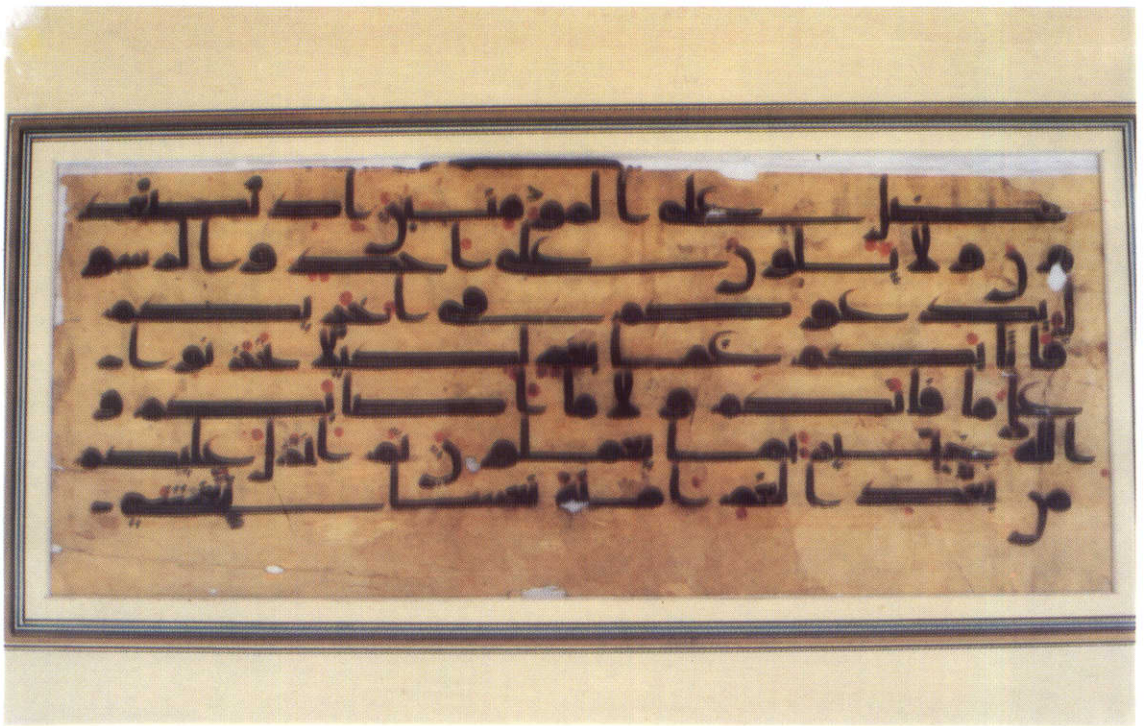 فضل على المؤمنين اذ تصعد
ون ولا تلون على احد والرسو
ل يدعوكم في اخريكم
فاثبكم غما بغم لكيلا تحزنوا
على ما فاتكم ولا ما اصابكم و
الله خبير بما تعملون ثم انزل عليكم
من بعد الغم امنة نعاسا يغشى